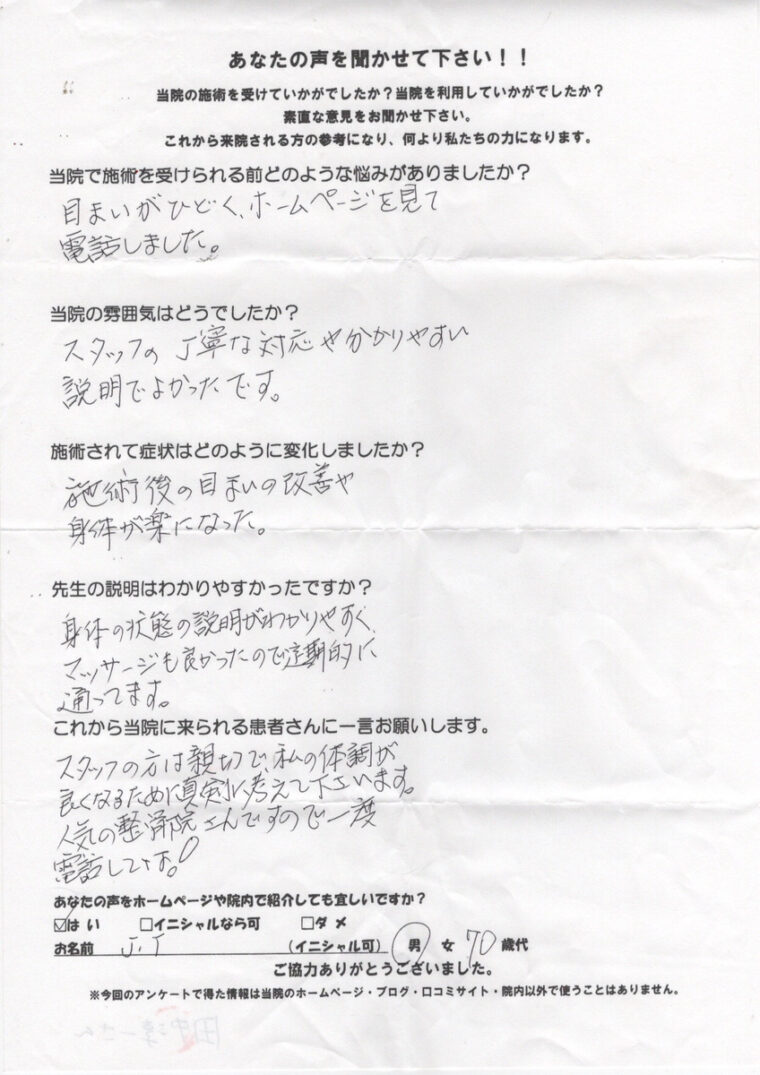 あなたの声を聞かせて下さい！！
当院の施術を受けていかがでしたか？当院を利用していかがでしたか？
素直な意見をお聞かせ下さい。
これから来院される方の参考になり、何より私たちの力になります。
当院で施術を受けられる前どのような悩みがありましたか？
目まいがひどく、ホームページを見て
電話しました。
当院の雰囲気はどうでしたか？
スタッフの丁寧な対応や分かりやすい
説明でよかったです。
施術されて症状はどのように変化しましたか？
施術後の目まいの改善や
身体が楽になった。
先生の説明はわかりやすかったですか？
身体の状態の説明がわかりやすく、
マッサージも良かったので定期的に
通ってます。
これから当院に来られる患者さんに一言お願いします。
スタッフの方は親切で、私の体調が
良くなるために真剣に考えて下さいます。
人気の整骨院さんですので一度
電話してみては！
あなたの声をホームページや院内で紹介しても宜しいですか？
☑はい □イニシャルなら可 □ダメ
お名前 J.T （イニシャル可） 男 女 70 歳代
ご協力ありがとうございました。
※今回のアンケートで得た情報は当院のホームページ・ブログ・口コミサイト・院内以外で使うことはありません。